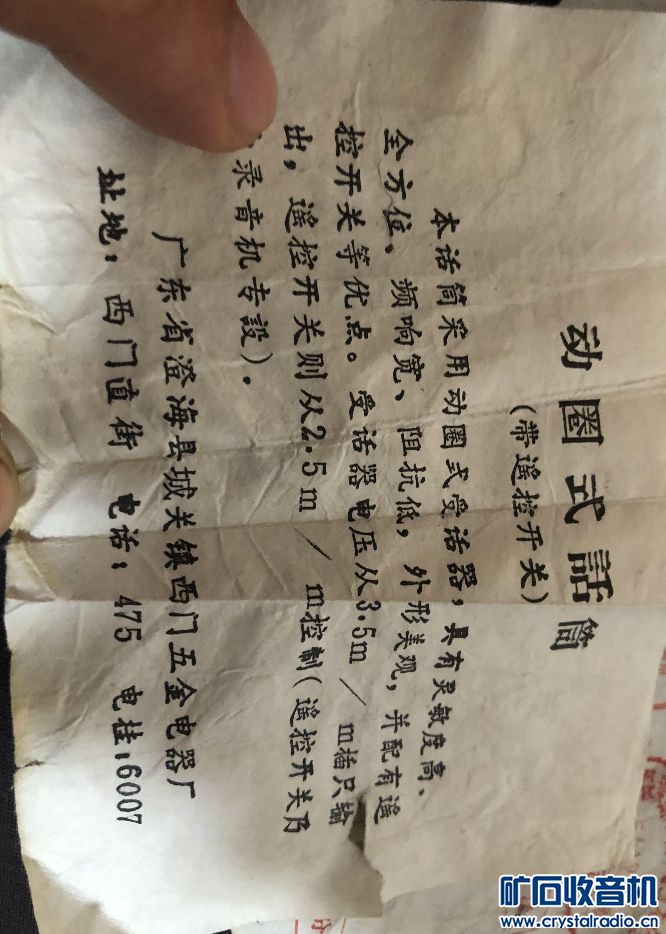 动圈式話筒
(带遥控开关)
本话筒采用动圈式受话器，具有灵敏度高、
全方位、频响宽、阻抗低，外形美观，并配有遥
控开关等优点。受话器电压从3.5m／m插只输
出，遥控开关则从2.5m／m控制(遥控开关乃
录音机专設)。
广东省澄海县城关镇西门五金电器厂
址地：西门直街 电话：475 电挂：6007
矿石收音机
www.crystalradio.cn